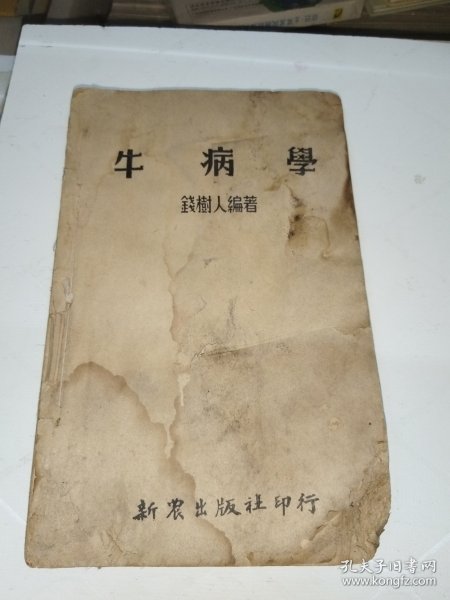 牛病學
錢樹人編著
新农出版社印行
孔夫子旧书网
www.kongfz.com